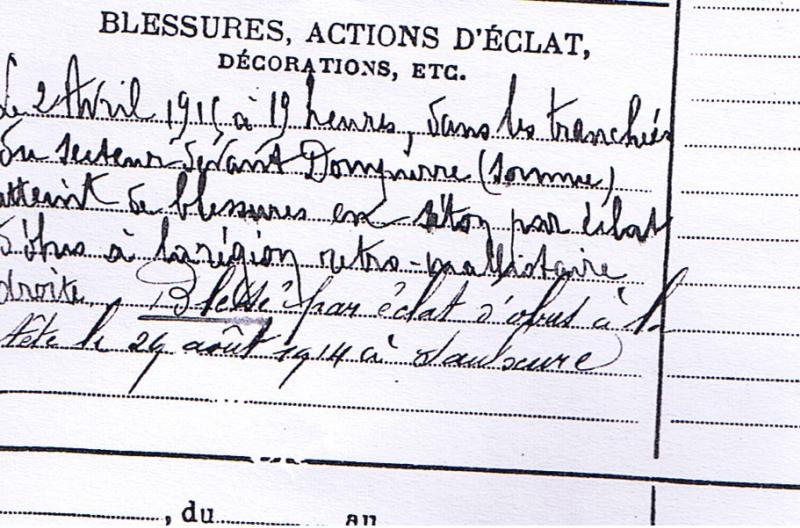 BLESSURES, ACTIONS D'ÉCLAT,
DÉCORATIONS, ETC.
Le 2 Avril 1915 à 19 heures, dans les tranchées
du secteur devant Dompierre (Somme)
atteint de blessures en séton par éclat
d'obus à la région retro-mastoidaire
droite Blessé par éclat d'obus à la
tête le 29 août 1914 à Saulxure
, du au